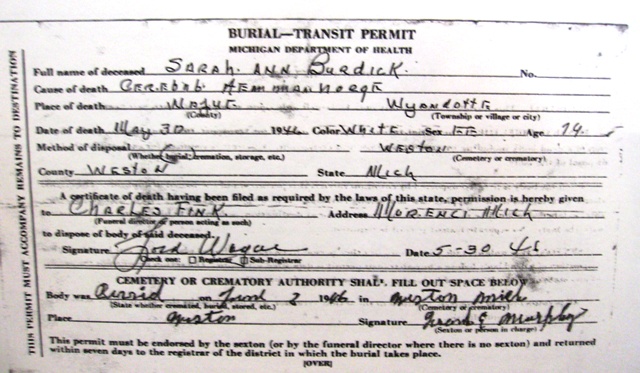 BURIAL—TRANSIT PERMIT
MICHIGAN DEPARTMENT OF HEALTH
Full name of deceased SARAH. ANN BURDICK. No.
Cause of death CEREBAL HEMMANHORGE
Place of death WAYNE WYANDOTTE
(County) (Township or village or city)
Date of death MAY 30 1946 Color WHITE Sex FE Age 79
Method of disposal WESTON
(Whether burial, cremation, storage, etc.) (Cemetery or crematory)
County WESTON State Mich
A certificate of death having been filed as required by the laws of this state, permission is hereby given
to CHARLES FINK Address MORENCI Mich
(Funeral director or person acting as such)
to dispose of body of said deceased.
Signature Date 5-30 46
Check one: Registrar Sub-Registrar
CEMETERY OR CREMATORY AUTHORITY SHALL FILL OUT SPACE BELOW
Body was Burrid on June 2 1946 in Weston Mich
(State whether cremated, buried, stored, etc.) (Cemetery or crematory)
Place Weston Signature Frank E Murphy
(Sexton or person in charge)
This permit must be endorsed by the sexton (or by the funeral director where there is no sexton) and returned
within seven days to the registrar of the district in which the burial takes place.
[OVER]
THIS PERMIT MUST ACCOMPANY REMAINS TO DESTINATION